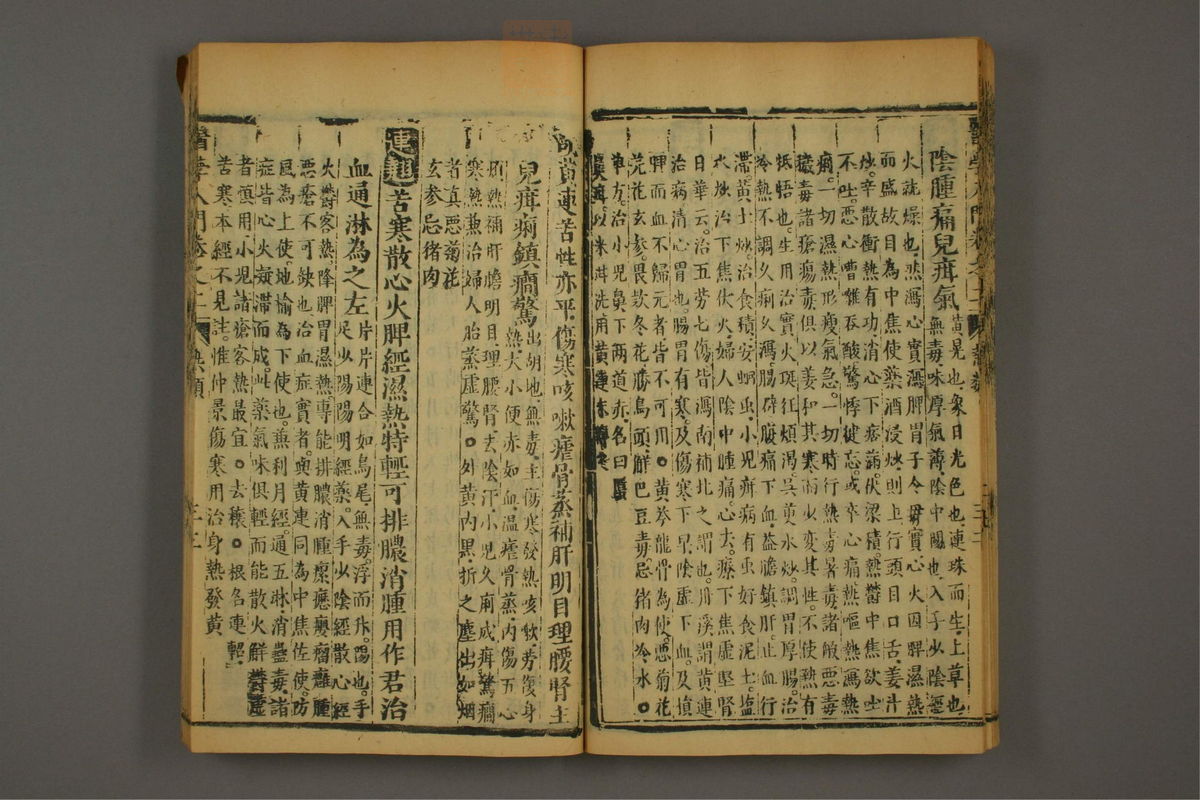 陰腫痛兒疳氣黃是也象日光色也連珠而生上草也
無毒味厚氣薄陰中陽也入手少陰經
火就燥也然瀉心實瀉脾胃也子令母實心火因脾濕熱
而盛故目為中焦使藥酒浸炒則上行頭目口舌姜汁
炒辛散衝熱有功消心下痞滿伏梁積熱鬱中焦欲吐
不吐惡心嘈雜吞酸驚悸健忘或卒心痛熱嘔熱瀉熱
痢一切濕熱形瘦氣急一切時行熱毒暑毒諸般惡毒
穢毒諸瘡瘍毒俱以姜和其寒而少變其性不使熱有
抵牾也生用治實火斑狂煩渴吳茰水炒調胃厚腸治
冷熱不調久痢久瀉腸澼腹痛下血益膽鎮肝止血行
滯黃土炒治食積安蛔虫小兒疳病有虫好食泥土塩
水炒治下焦伏火婦人陰中腫痛心去療下焦虛堅腎
日華云治五勞七傷皆瀉南補北之謂也丹溪謂黃連
治病清心胃也腸胃有寒及傷寒下早陰虛下血及損
脾而血不歸元者皆不可用黃芩龍骨為使惡菊花
芫花玄參畏款冬花勝烏頭解巴豆毒忌猪肉冷水
單方治小兒鼻下兩道赤名曰䘌
以米泔洗用黃連末
胡黃連苦性亦平傷寒咳嗽瘧骨蒸補肝明目理腰腎主
兒疳痢鎮癇驚出胡地無毒主傷寒發熱咳嗽勞復身
熱大小便赤如血溫瘧骨蒸內傷五心
煩熱補肝膽明目理腰腎去陰汗小兒久痢成疳驚癇
寒熱兼治婦人胎蒸虛驚外黃內黑折之塵出如烟
者真惡菊花
玄參忌猪肉
連翹苦寒散心火脾經濕熱特輕可排膿消腫用作君治
血通淋為之左片片連合如鳥尾無毒浮而升陽也手
足少陽陽明經藥入手少陰經散心經
火鬱客熱降脾胃濕熱專能排膿消腫瘰癧癭瘤癰腫
惡瘡不可缺也治血症實者與黃連同為中焦佐使防
風為上使地榆為下使也兼利月經通五淋消蠱毒諸
症皆心火凝滯而成此藥氣味俱輕而能散火解鬱虛
者慎用小兒諸瘡客熱最宜去穰根名連軺
苦寒本經不見註惟仲景傷寒用治身熱發黃
醫學入門卷之二 熱類